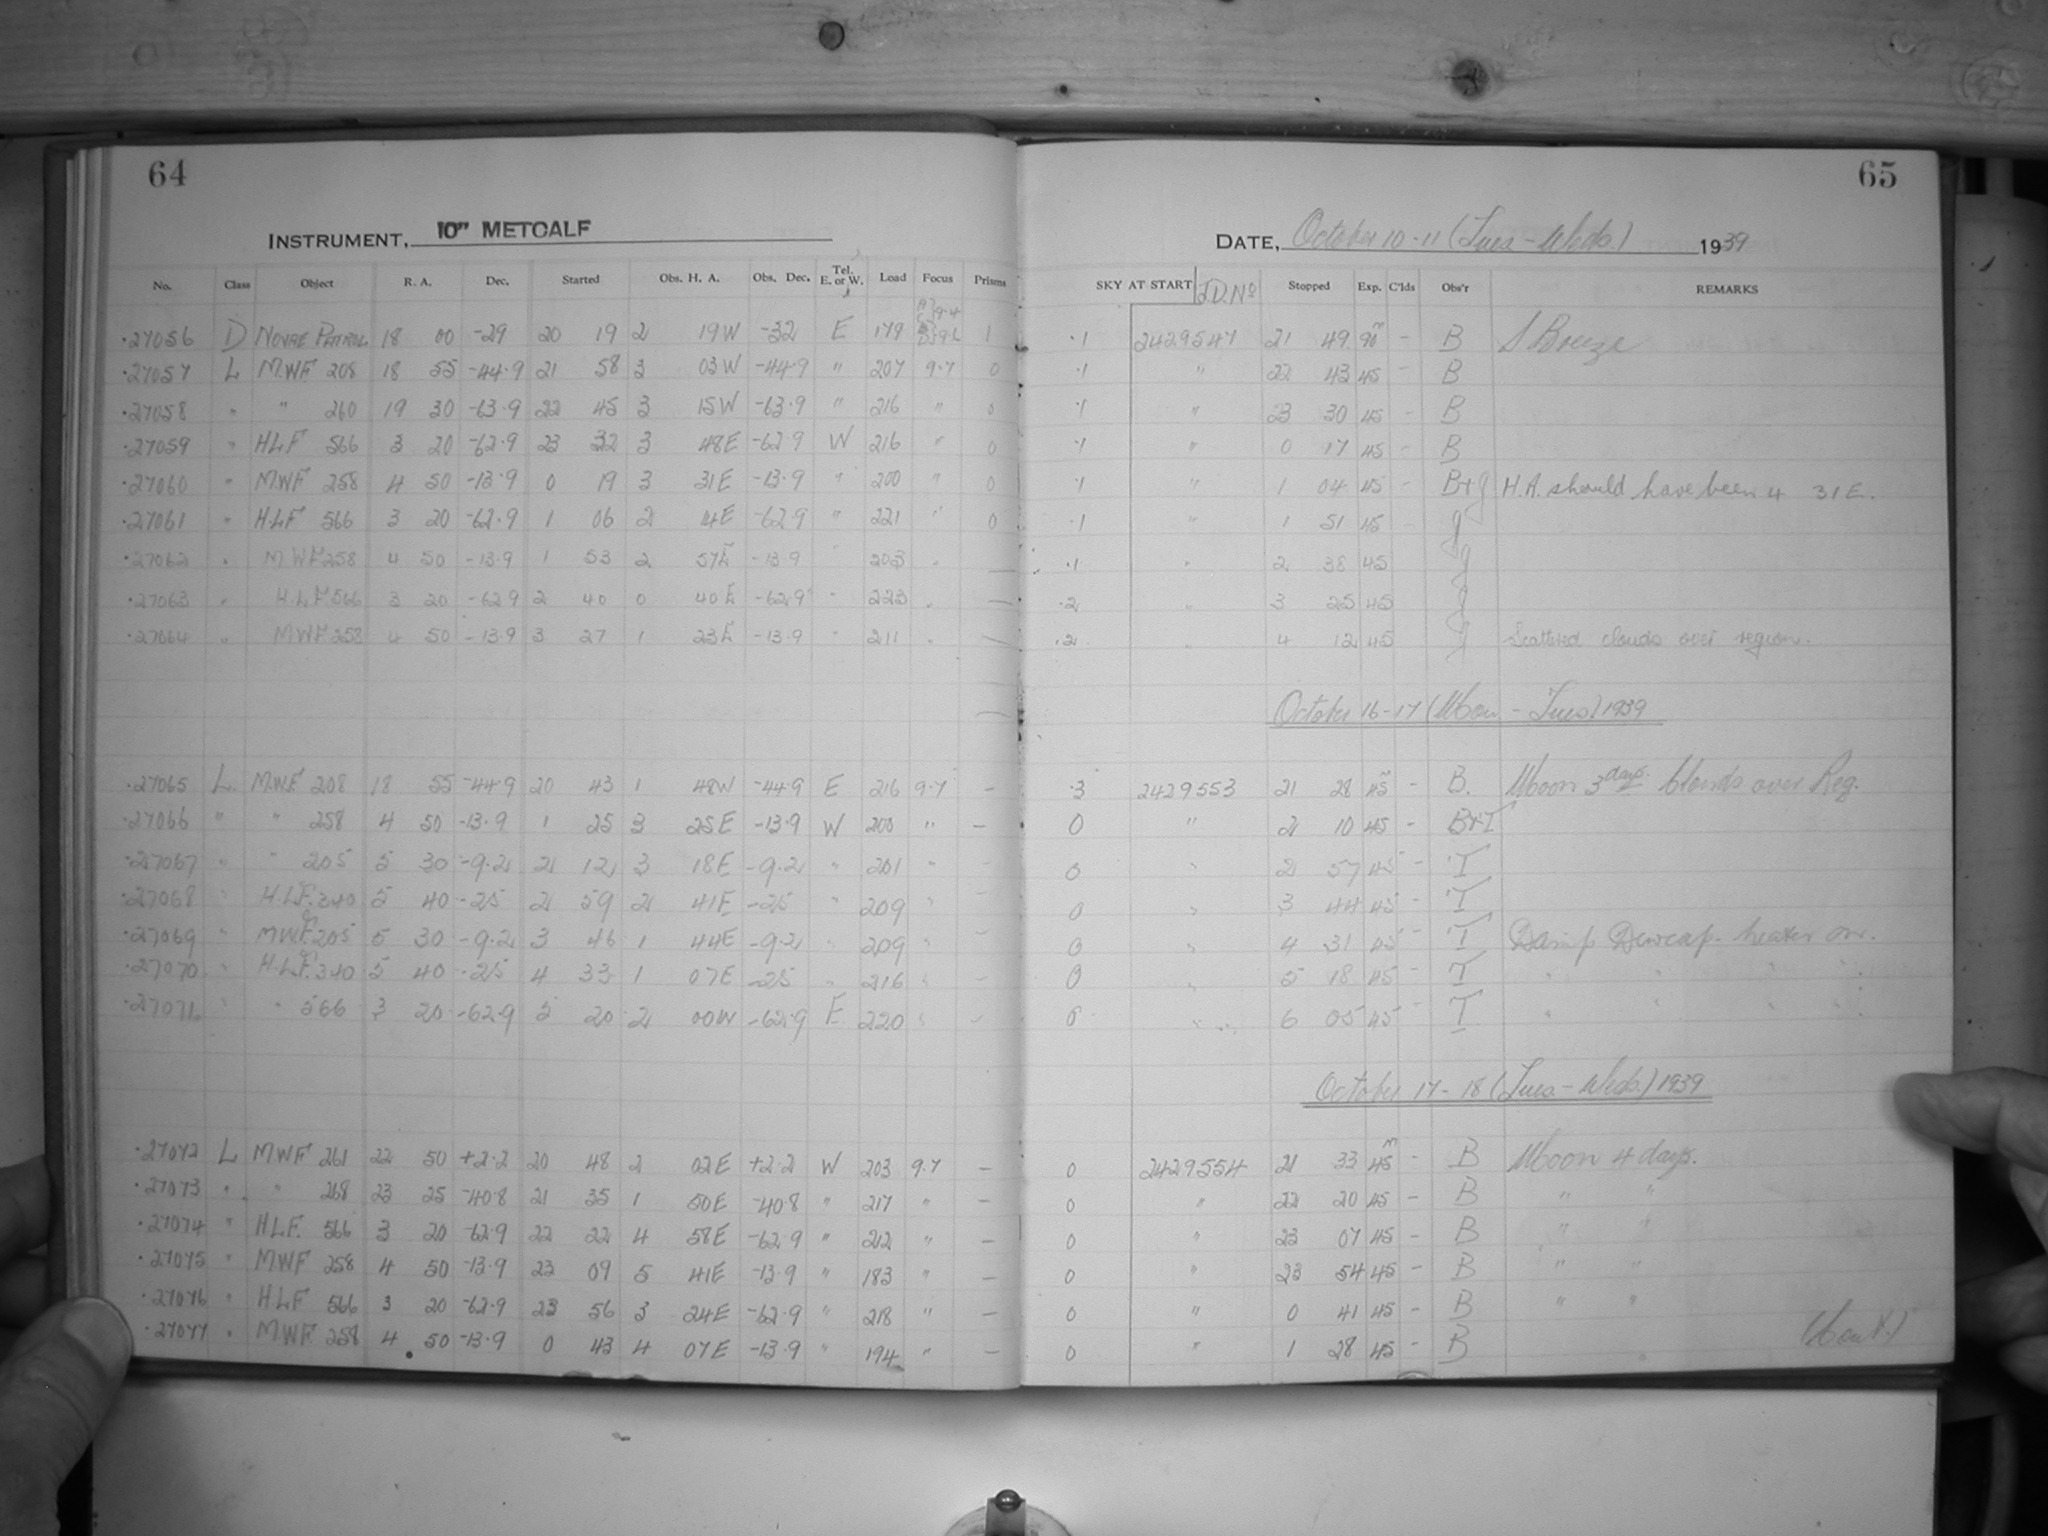 64
INSTRUMENT, 10" METCALF
No. Class Object R. A. Dec. Started Obs. H. A. Obs. Dec. Tel. E. or W. Load Focus Prisms
.27056 D NOVAE PATROL 18 00 -29 20 19 2 19W -32 E 179 1
.27057 L M.WF 208 18 55 -44.9 21 58 3 03W -44.9 " 207 9.7 0
.27058 " " 260 19 30 -63.9 22 45 3 15W -63.9 " 216 " 0
.27059 " HLF 566 3 20 -62.9 23 32 3 48E -62.9 W 216 " 0
.27060 " M.WF 258 4 50 -13.9 0 19 3 31E -13.9 " 200 " 0
.27061 " H.LF 566 3 20 -62.9 1 06 2 14E -62.9 " 221 " 0
.27062 " M.WF 258 4 50 -13.9 1 53 2 57E -13.9 " 203 " —
.27063 " H.LF 566 3 20 -62.9 2 40 0 40E -62.9 " 223 " —
.27064 " MWF 258 4 50 -13.9 3 27 1 23E -13.9 " 211 " —
.27065 L. M.WF 208 18 55 -44.9 20 43 1 48W -44.9 E 216 9.7 —
.27066 " " 258 4 50 -13.9 1 25 3 25E -13.9 W 200 " —
.27067 " " 205 5 30 -9.2 2 12 3 18E -9.2 " 201 " —
.27068 " H.LF. 340 5 40 -25 2 59 2 41E -25 " 209 " —
.27069 " MWF. 205 5 30 -9.2 3 46 1 44E -9.2 " 209 " —
.27070 " H.LF. 340 5 40 -25 4 33 1 07E -25 " 216 " —
.27071 " " 566 3 20 -62.9 5 20 2 00W -62.9 E 220 " —
.27072 L MWF 261 22 50 +2.2 20 48 2 02E +2.2 W 203 9.7 —
.27073 " " 268 23 25 -40.8 21 35 1 50E -40.8 " 217 " —
.27074 " HLF. 566 3 20 -62.9 22 22 4 58E -62.9 " 212 " —
.27075 " MWF 258 4 50 -13.9 23 09 5 41E -13.9 " 183 " —
.27076 " HLF 566 3 20 -62.9 23 56 3 24E -62.9 " 218 " —
.27077 " M.WF. 258 4 50 -13.9 0 43 4 07E -13.9 " 194 " —
65
DATE, October 10-11 (Tues-Weds.) 1939
SKY AT START J.D. No Stopped Exp. C'lds Obs'r REMARKS
.1 2429547 21 49 90m - B S Breeze
.1 " 22 43 45 - B
.1 " 23 30 45 B
.1 " 0 17 45 - B
.1 " 1 04 45 - B+J H.A. should have been 4 31E.
.1 " 1 51 45 - J
.1 " 2 38 45 J
.2 " 3 25 45 J
.2 " 4 12 45 J Scattered clouds over region.
October 16-17 (Mon - Tues) 1939
.3 2429553 21 28 45m - B. Moon 3 days. Clouds over Reg.
0 " 2 10 45 - B+T
0 " 2 57 45 - T
0 " 3 44 45 - T
0 " 4 31 45 - T Damp Dewcap heater on.
0 " 5 18 45 - T " " " "
0 " 6 05 45 - T " " " "
October 17-18 (Tues-Weds.) 1939
0 2429554 21 33 45m - B Moon 4 days.
0 " 22 20 45 - B " "
0 " 23 07 45 - B " "
0 " 23 54 45 - B " "
0 " 0 41 45 - B " "
0 " 1 28 45 - B (Con't.)